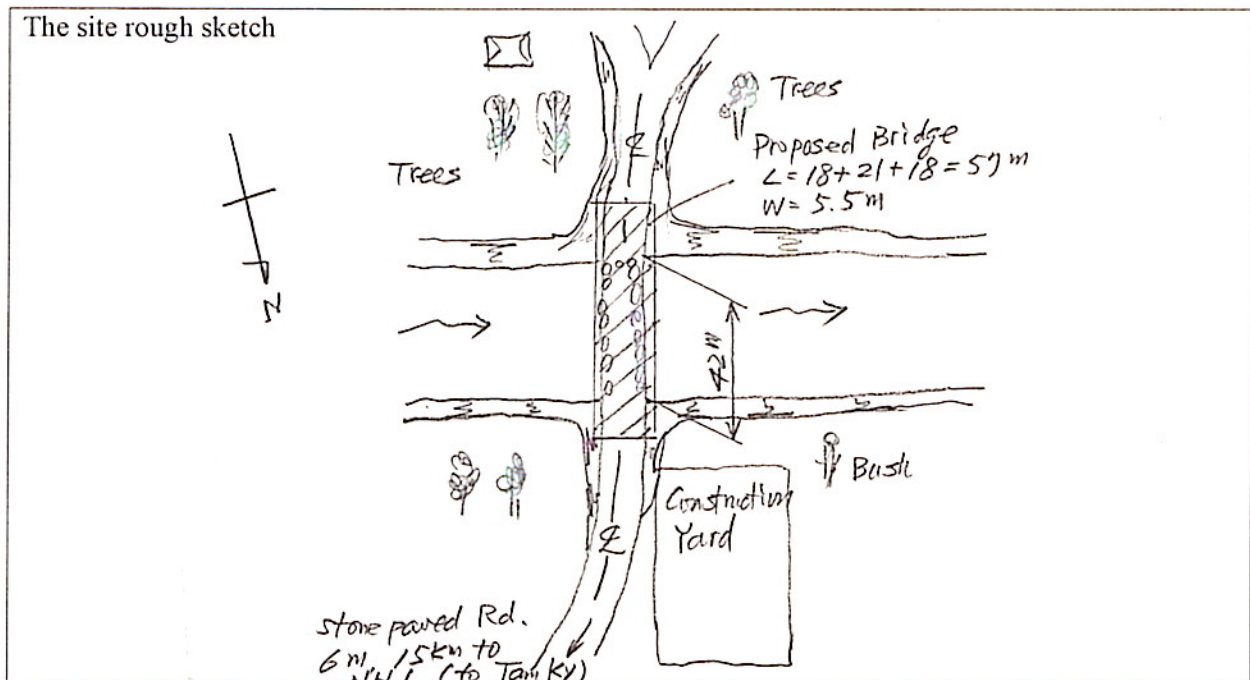 The site rough sketch
Trees
Proposed Bridge
L = 18 + 21 + 18 = 57 m
W = 5.5 m
Trees
N
42 m
Bush
Construction
Yard
stone paved Rd.
6 m, 15 km to
(to Tam Ky)